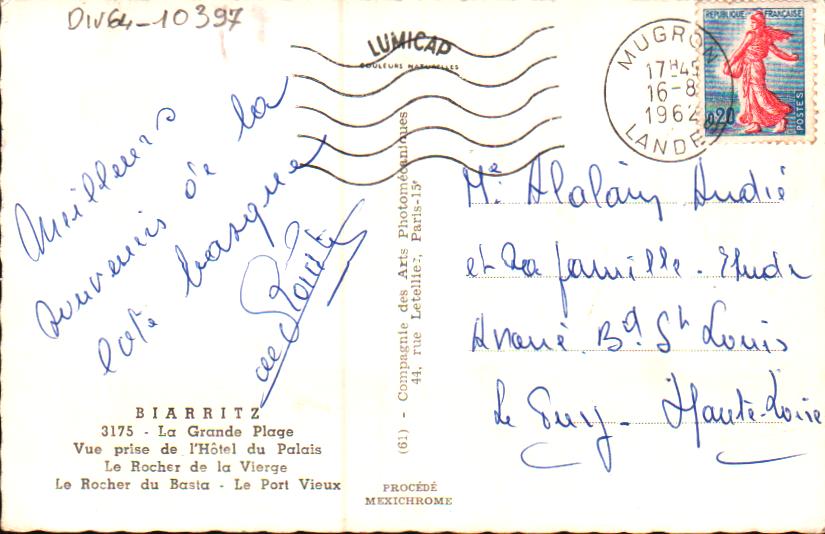 DIV64-10397
LUMICAP
COULEURS NATURELLES
MUGRON
17H45
16-8
1962
LANDES
REPUBLIQUE FRANÇAISE
0,20
POSTES
Meilleurs
souvenirs de la
côte basque
de
BIARRITZ
3175 - La Grande Plage
Vue prise de l'Hôtel du Palais
Le Rocher de la Vierge
Le Rocher du Basta - Le Port Vieux
(61) - Compagnie des Arts Photomécaniques
44, rue Letellier, Paris-15e
PROCÉDÉ
MEXICHROME
Me
et sa famille. Etude
Avoué Bd St Louis
Le Puy - Haute-Loire